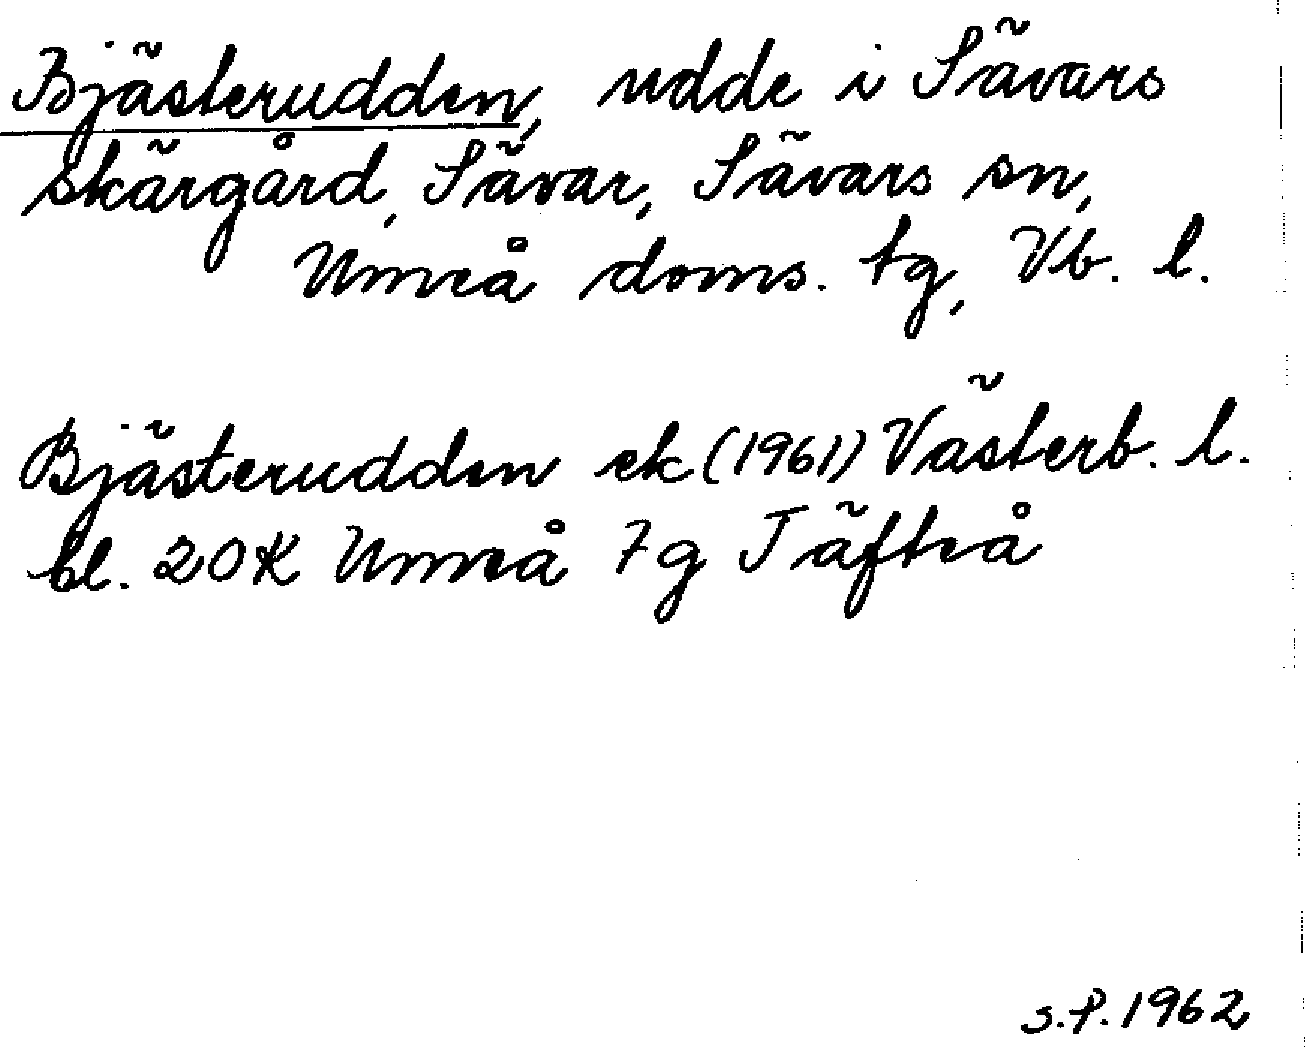 Bjästerudden, udde i Sävars
skärgård, Sävar, Sävars sn,
Umeå doms. tg, Vb. l.
Bjästerudden ek (1961) Västerb. l.
bl. 20K Umeå 7g Täfteå
S.P. 1962